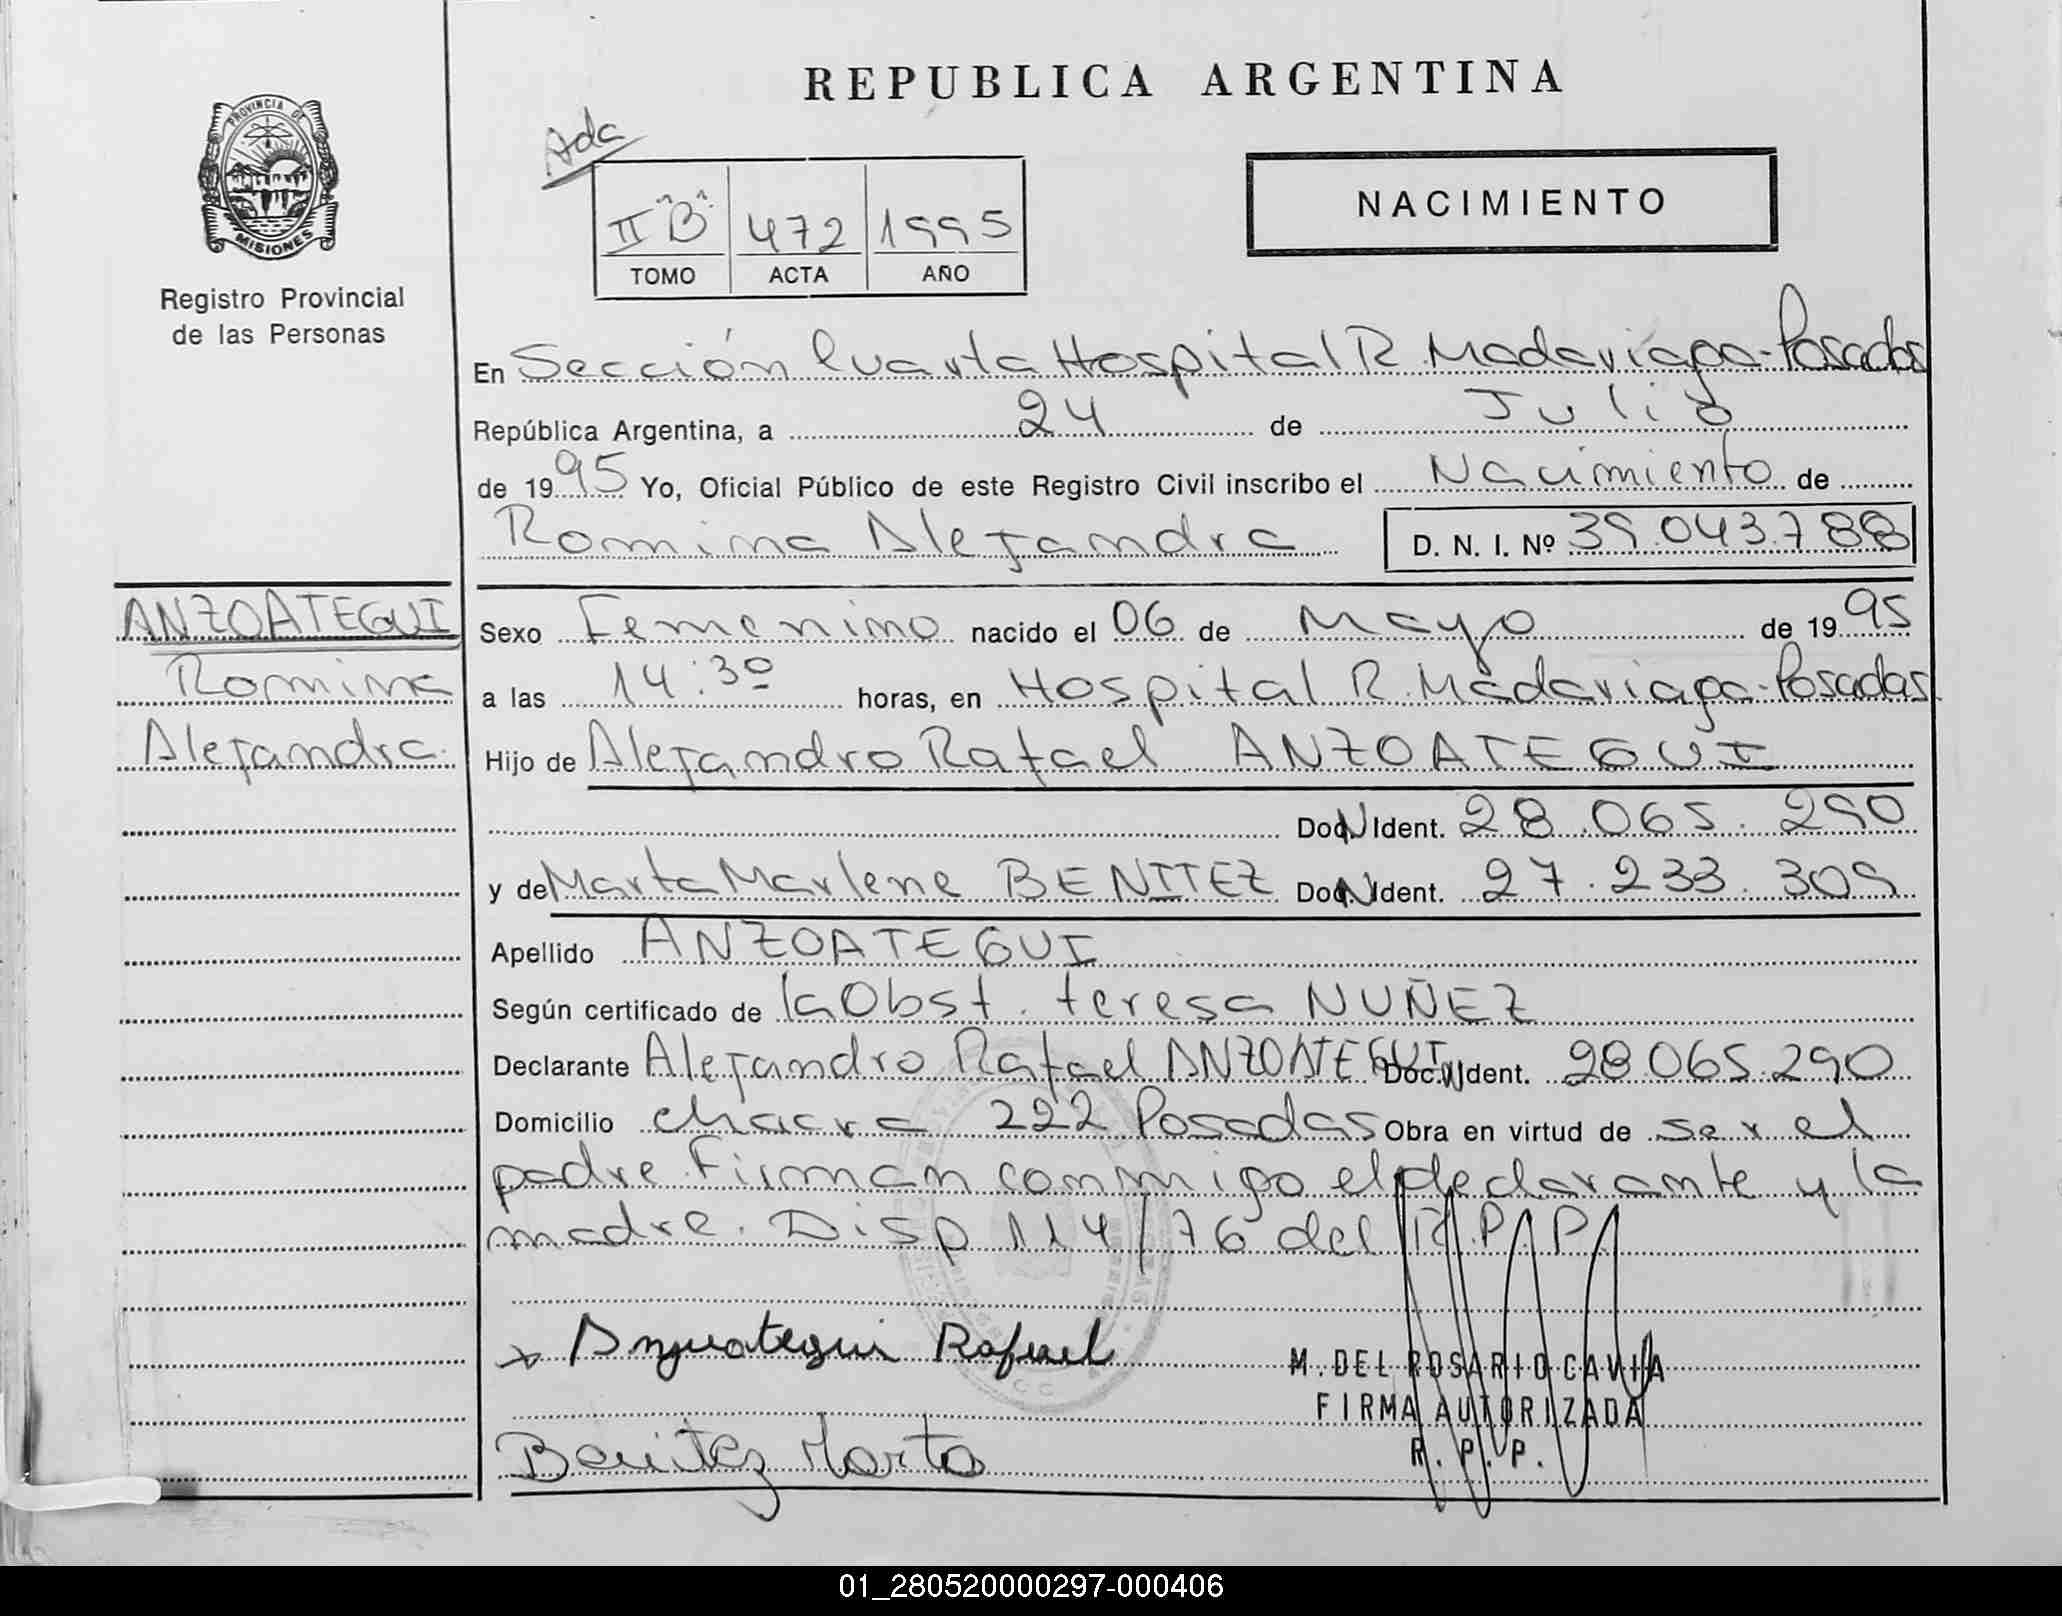 REPUBLICA ARGENTINA
PROVINCIA DE
MISIONES
Registro Provincial
de las Personas
Ada
II "B" 472 1995
TOMO ACTA AÑO
NACIMIENTO
En Sección Cuarta Hospital R. Madariaga-Posadas
República Argentina, a 24 de Julio
de 1995 Yo, Oficial Público de este Registro Civil inscribo el Nacimiento de
Romina Alejandra D. N. I. Nº 39.043.788
ANZOATEGUI
Romina
Alejandra
Sexo Femenino nacido el 06 de Mayo de 1995
a las 14:30 horas, en Hospital R. Madariaga-Posadas
Hijo de Alejandro Rafael ANZOATEGUI
Doc. N Ident. 28.065.290
y de Marta Marlene BENITEZ Doc. N Ident. 27.233.309
Apellido ANZOATEGUI
Según certificado de la Obst. teresa NUÑEZ
Declarante Alejandro Rafael ANZOATEGUI Doc. N Ident. 28.065.290
Domicilio chacra 222 Posadas Obra en virtud de ser el
padre. Firman conmigo el declarante y la
madre. Disp 114/76 del R.P.P.
Anzuategui Rafael
M. DEL ROSARIO CAVIA
FIRMA AUTORIZADA
R. P. P.
Benitez Marta
01_280520000297-000406